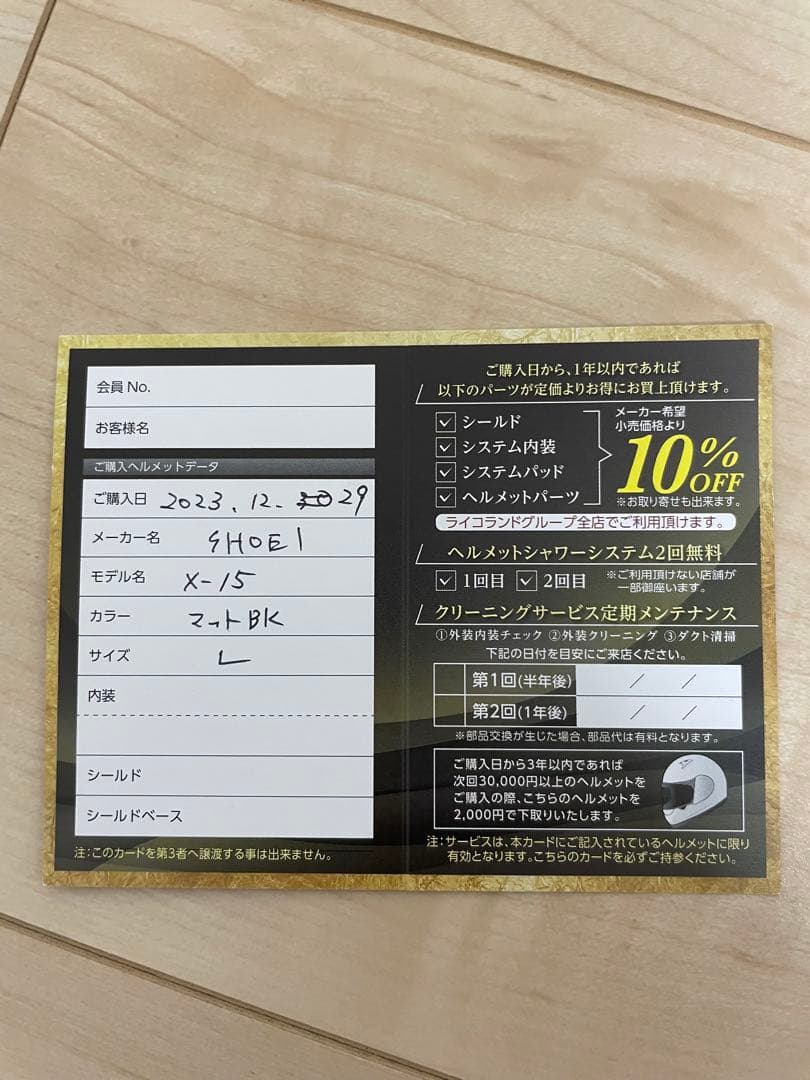 会員 No.
お客様名
ご購入ヘルメットデータ
ご購入日 2023.12. 29
メーカー名 SHOEI
モデル名 X-15
カラー マットBK
サイズ L
内装
シールド
シールドベース
注:このカードを第3者へ譲渡する事は出来ません。
ご購入日から、1年以内であれば
以下のパーツが定価よりお得にお買上頂けます。
シールド
システム内装
システムパッド
ヘルメットパーツ
メーカー希望
小売価格より
10%
OFF
※お取り寄せも出来ます。
ライコランドグループ全店でご利用頂けます。
ヘルメットシャワーシステム2回無料
1回目 2回目 ※ご利用頂けない店舗が
一部御座います。
クリーニングサービス定期メンテナンス
①外装内装チェック ②外装クリーニング ③ダクト清掃
下記の日付を目安にご来店ください。
第1回(半年後) / /
第2回(1年後) / /
※部品交換が生じた場合、部品代は有料となります。
ご購入日から3年以内であれば
次回30,000円以上のヘルメットを
ご購入の際、こちらのヘルメットを
2,000円で下取りいたします。
注:サービスは、本カードにご記入されているヘルメットに限り
有効となります。こちらのカードを必ずご持参ください。